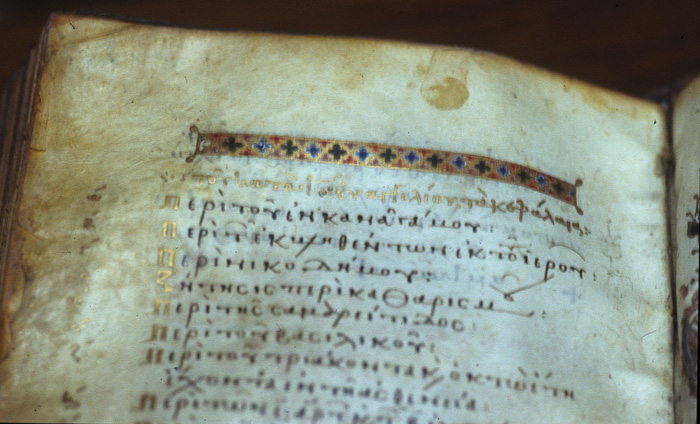 τοῦ κατὰ εὐαγγελίου τὰ κεφάλαια:
Περὶ τοῦ ἐν κανᾶ γάμου:
Περὶ τ ἐκβληθέντων ἐκ τοῦ ἱεροῦ:
Περὶ νικοδήμου:
Ζήτησις περὶ καθαρισμ
Περὶ τῆς σαμαρείτιδος:
Περὶ τοῦ βασιλικοῦ:
Περὶ τοῦ τριάκοντα κ ὀκτὼ ἔτη
ἔχοντα ἐν τῇ ἀσθενεία:
Περὶ τῶν ε ἄρτων